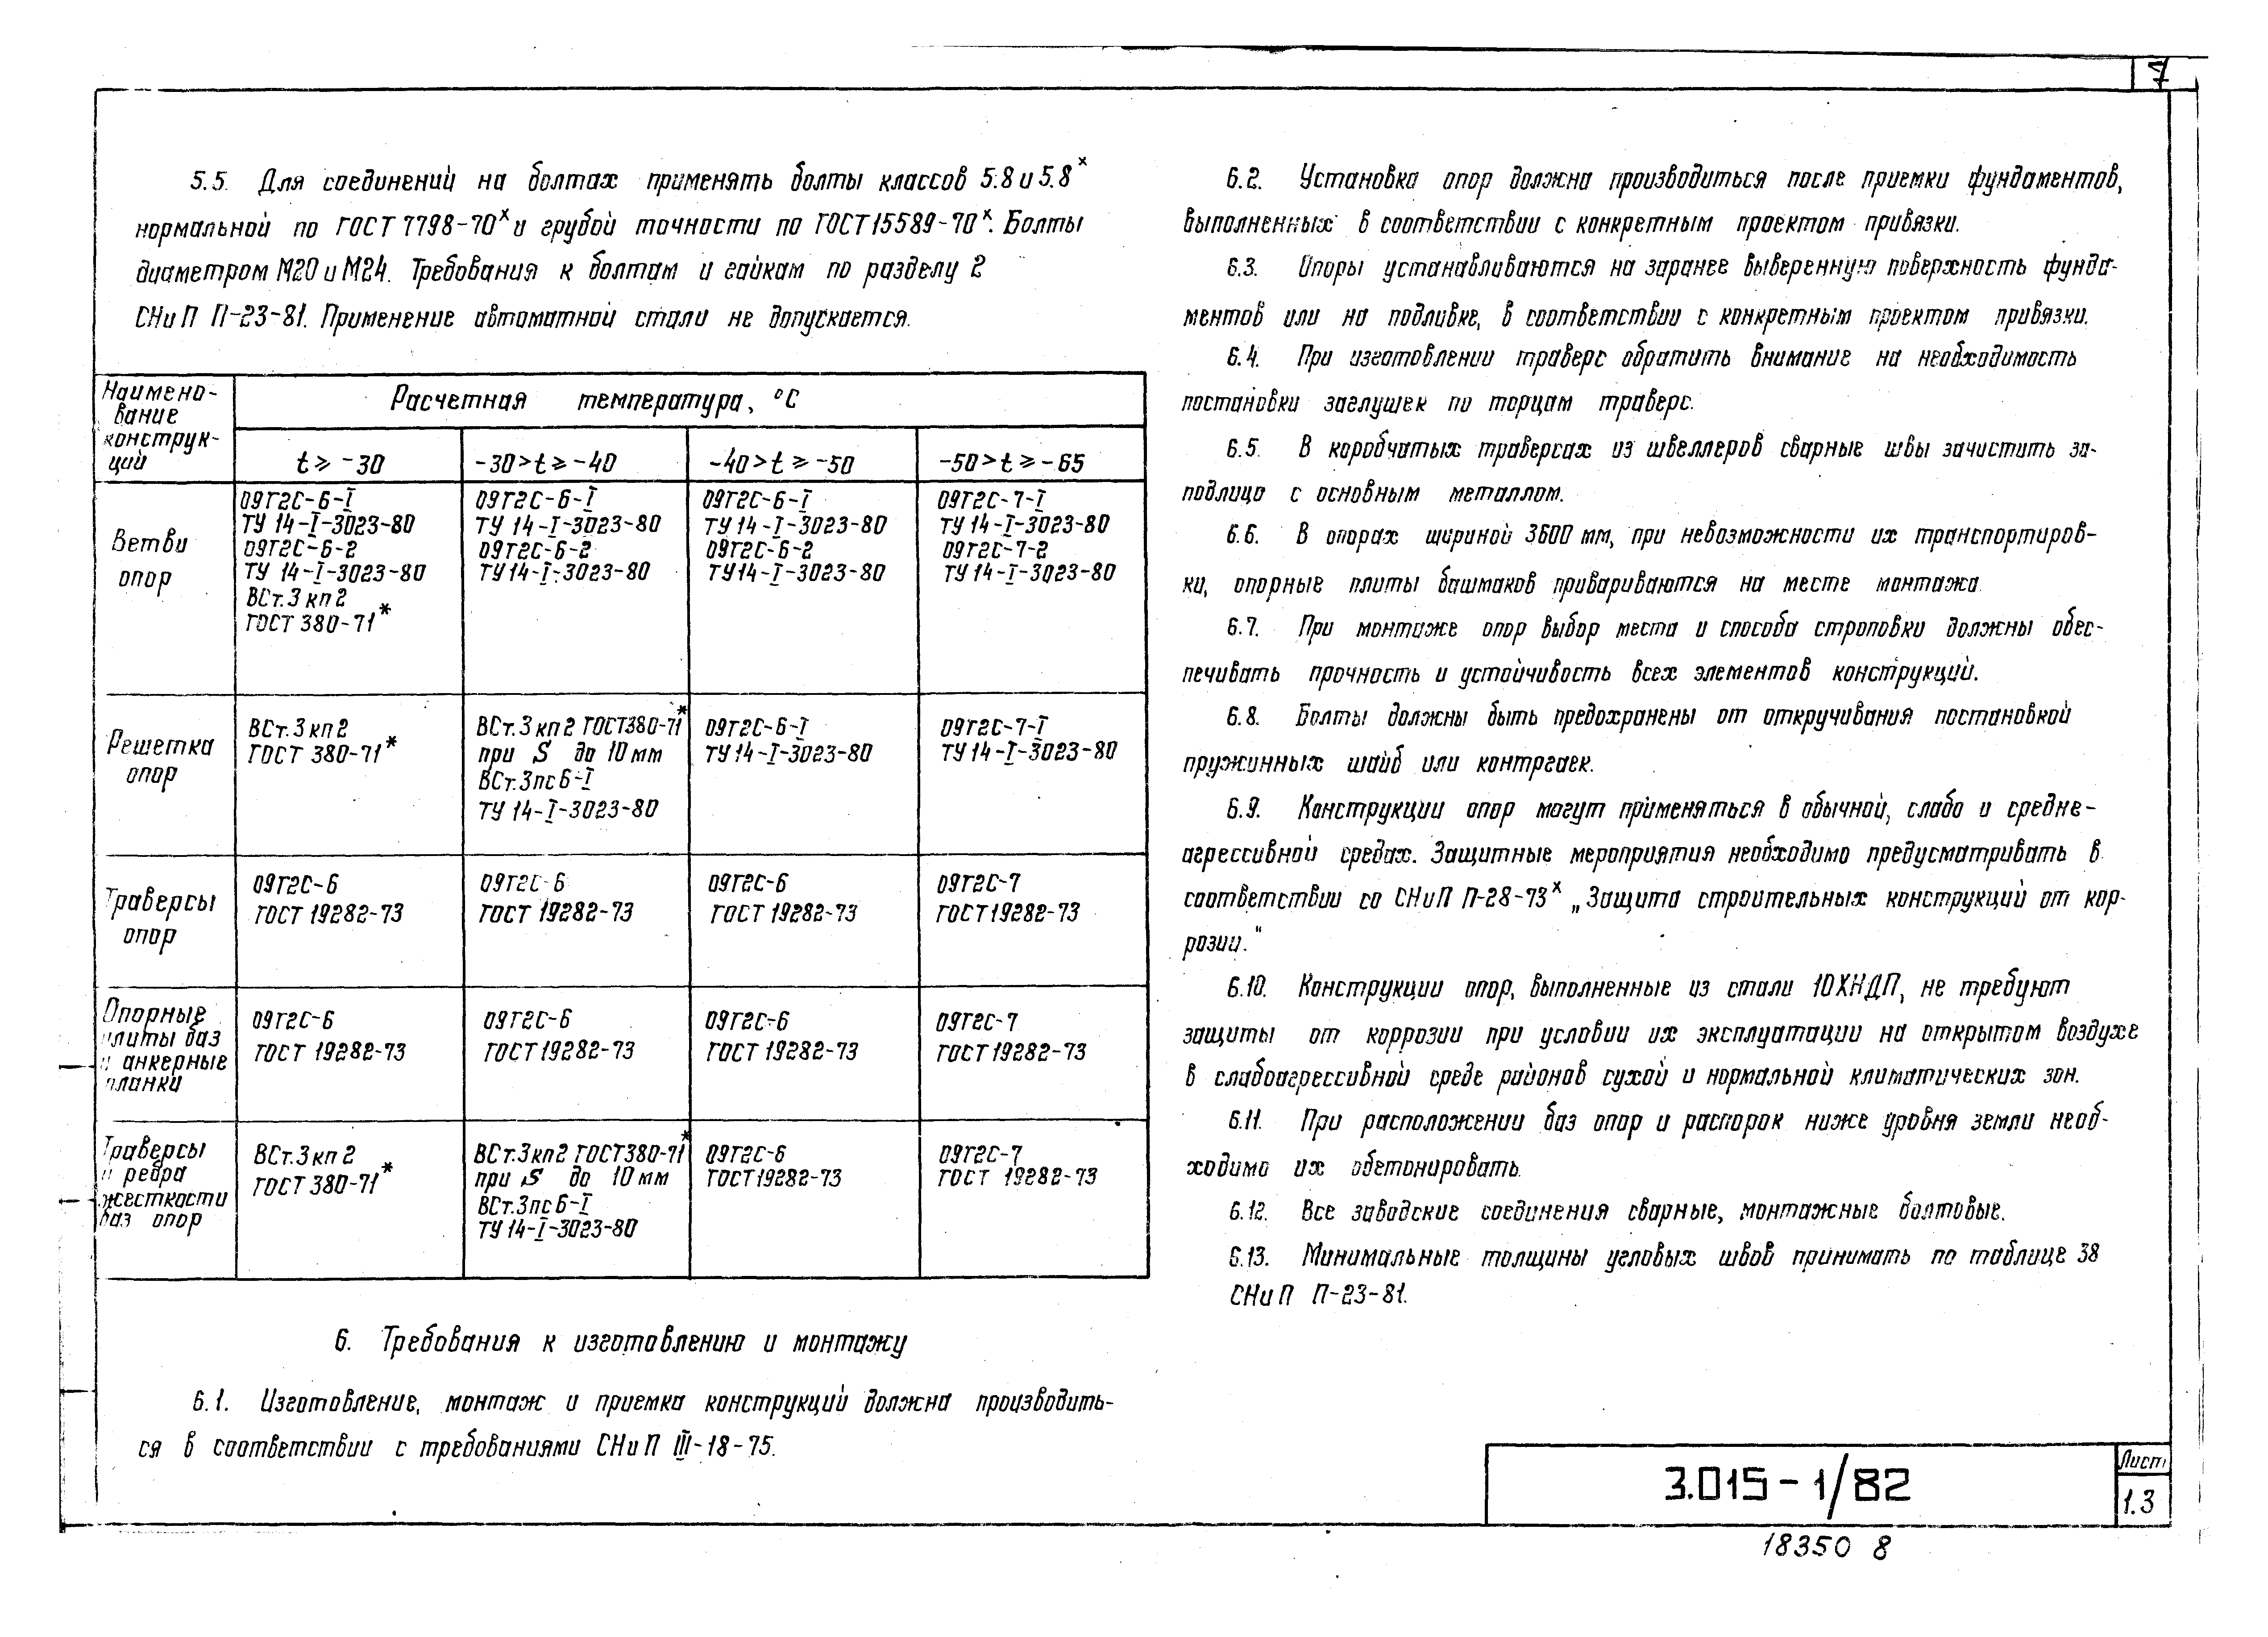 7
5.5. Для соединений на болтах применять болты классов 5.8 и 5.8ˣ
нормальной по ГОСТ 7798-70ˣ и грубой точности по ГОСТ 15589-70ˣ. Болты
диаметром М20 и М24. Требования к болтам и гайкам по разделу 2
СНиП П-23-81. Применение автоматной стали не допускается.
Наимено-
вание
конструк-
ций
Расчетная температура, °С
t ⩾ -30
-30 > t ⩾ -40
-40 > t ⩾ -50
-50 > t ⩾ -65
Ветви
опор
09Г2С-6-I
ТУ 14-I-3023-80
09Г2С-6-2
ТУ 14-I-3023-80
ВСт.3 кп 2
ГОСТ 380-71*
09Г2С-6-I
ТУ 14-I-3023-80
09Г2С-6-2
ТУ 14-I-3023-80
09Г2С-6-I
ТУ 14-I-3023-80
09Г2С-6-2
ТУ 14-I-3023-80
09Г2С-7-I
ТУ 14-I-3023-80
09Г2С-7-2
ТУ 14-I-3023-80
Решетка
опор
ВСт.3 кп 2
ГОСТ 380-71*
ВСт.3 кп 2 ГОСТ380-71*
при S до 10 мм
ВСт.3пс 6-I
ТУ 14-I-3023-80
09Г2С-6-I
ТУ 14-I-3023-80
09Г2С-7-I
ТУ 14-I-3023-80
Траверсы
опор
09Г2С-6
ГОСТ 19282-73
09Г2С-6
ГОСТ 19282-73
09Г2С-6
ГОСТ 19282-73
09Г2С-7
ГОСТ 19282-73
Опорные
плиты баз
и анкерные
планки
09Г2С-6
ГОСТ 19282-73
09Г2С-6
ГОСТ 19282-73
09Г2С-6
ГОСТ 19282-73
09Г2С-7
ГОСТ 19282-73
Траверсы
и ребра
жесткости
баз опор
ВСт.3 кп 2
ГОСТ 380-71*
ВСт.3кп2 ГОСТ380-71*
при S до 10 мм
ВСт.3пс 6-I
ТУ 14-I-3023-80
09Г2С-6
ГОСТ 19282-73
09Г2С-7
ГОСТ 19282-73
6. Требования к изготовлению и монтажу
6.1. Изготовление, монтаж и приемка конструкций должна производить-
ся в соответствии с требованиями СНиП III-18-75.
6.2. Установка опор должна производиться после приемки фундаментов,
выполненных в соответствии с конкретным проектом привязки.
6.3. Опоры устанавливаются на заранее выверенную поверхность фунда-
ментов или на подливке, в соответствии с конкретным проектом привязки.
6.4. При изготовлении траверс обратить внимание на необходимость
постановки заглушек по торцам траверс.
6.5. В коробчатых траверсах из швеллеров сварные швы зачистить за-
подлицо с основным металлом.
6.6. В опорах шириной 3600 мм, при невозможности их транспортиров-
ки, опорные плиты башмаков привариваются на месте монтажа.
6.7. При монтаже опор выбор места и способа строповки должны обес-
печивать прочность и устойчивость всех элементов конструкций.
6.8. Болты должны быть предохранены от откручивания постановкой
пружинных шайб или контргаек.
6.9. Конструкции опор могут применяться в обычной, слабо и средне-
агрессивной средах. Защитные мероприятия необходимо предусматривать в
соответствии со СНиП П-28-73ˣ „Защита строительных конструкций от кор-
розии."
6.10. Конструкции опор, выполненные из стали 10ХНДП, не требуют
защиты от коррозии при условии их эксплуатации на открытом воздухе
в слабоагрессивной среде районов сухой и нормальной климатических зон.
6.11. При расположении баз опор и распорок ниже уровня земли необ-
ходимо их обетонировать.
6.12. Все заводские соединения сварные, монтажные болтовые.
6.13. Минимальные толщины угловых швов принимать по таблице 38
СНиП П-23-81.
3.015-1/82
Лист
1.3
18350 8